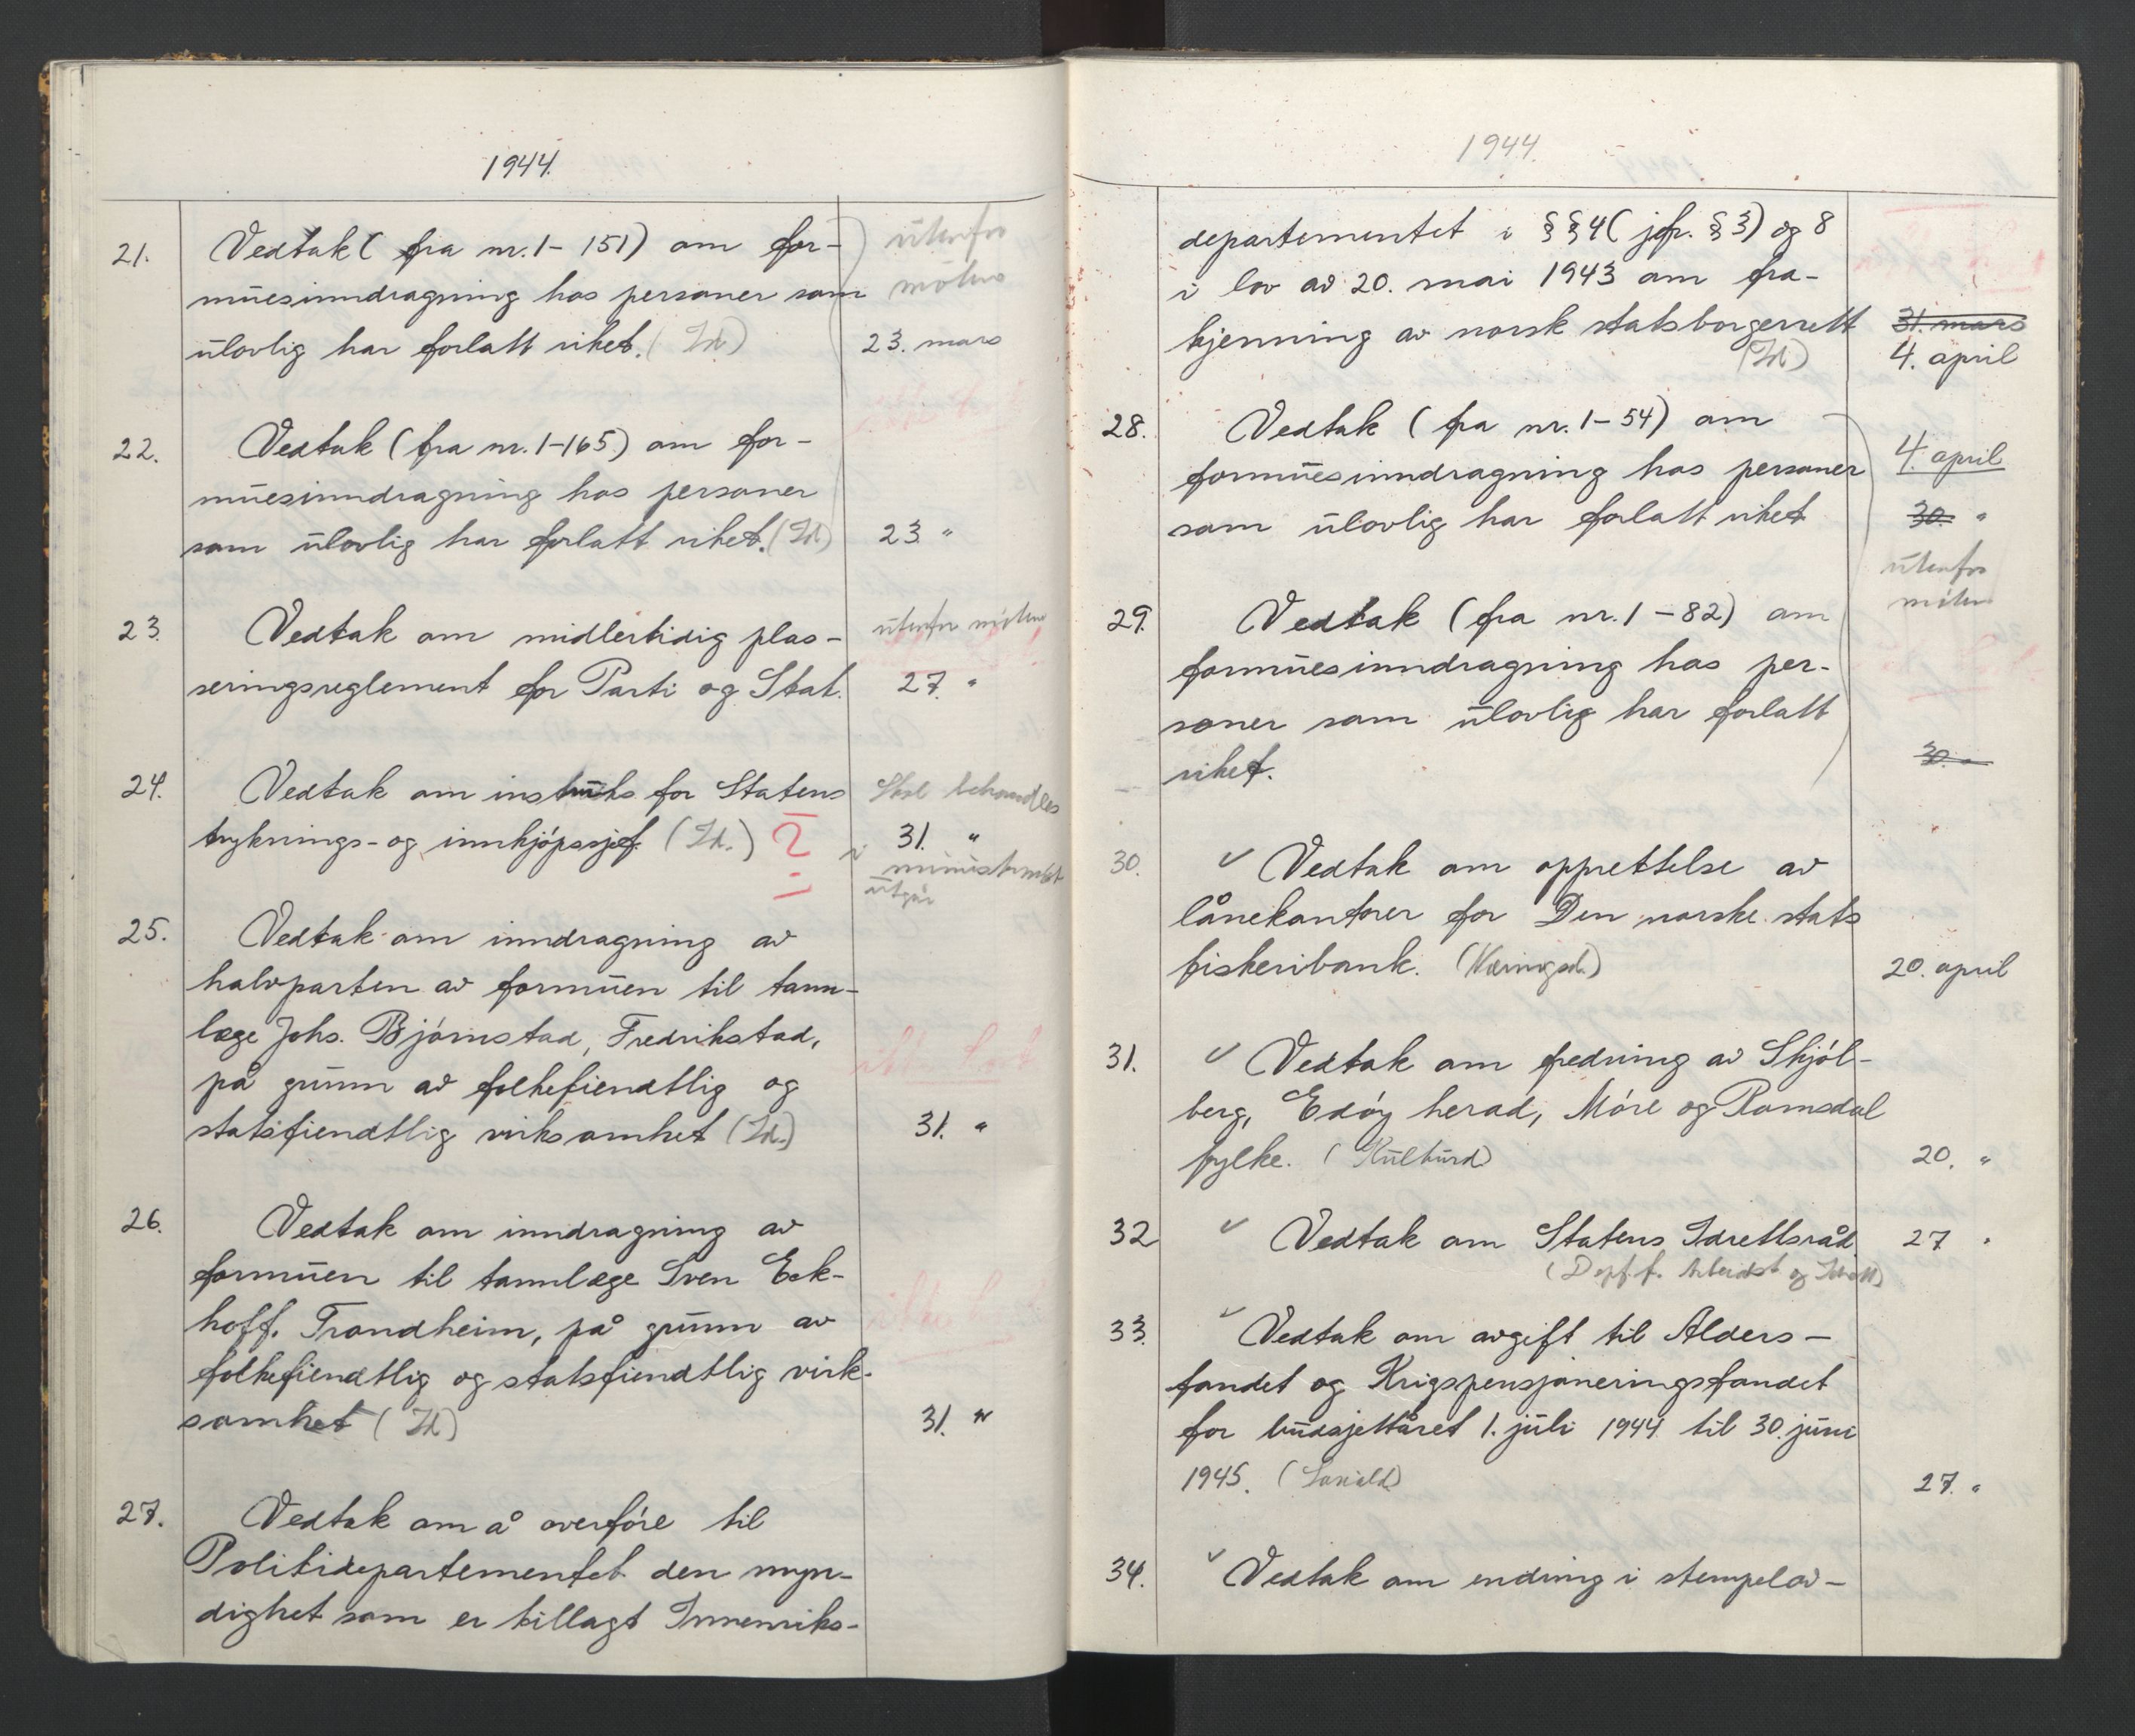 1944.
21. Vedtak (fra nr. 1-151) om for- utenfor
muesinndragning hos personer som møtene
ulovlig har forlatt riket. (Id) 23. mars
22. Vedtak (fra nr. 1-165) om for-
muesinndragning hos personer
som ulovlig har forlatt riket. (Id) 23. "
23. Vedtak om midlertidig plas- utenfor møtene
seringsreglement for Parti og Stat. 27. "
24. Vedtak om instruks for Statens Skal behandles
tryknings- og innkjøpssjef. (Id.) ? 31. "
i ministermøt
utgår
25. Vedtak om inndragning av
halvparten av formuen til tann-
læge Johs. Bjørnstad, Fredrikstad,
på grunn av folkefiendtlig og
statsfiendtlig virksomhet (Id.) 31. "
26. Vedtak om inndragning av
formuen til tannlæge Sven Eck-
hoff. Trondheim, på grunn av
folkefiendtlig og statsfiendtlig virk-
somhet (Id) 31. "
27. Vedtak om å overføre til
Politidepartementet den myn-
dighet som er tillagt Innenriks-
1944.
departementet i §§ 4 (jfr. § 3) og 8
i lov av 20. mai 1943 om fra-
kjenning av norsk statsborgerrett 31. mars
(Id) 4. april
28. Vedtak (fra nr. 1-54) om
formuesinndragning hos personer 4. april
som ulovlig har forlatt riket 30. "
utenfor
møtene
29. Vedtak (fra nr. 1-82) om
formuesinndragning hos per-
soner som ulovlig har forlatt
riket. 30. "
30. ✓ Vedtak om opprettelse av
lånekontorer for Den norske stats
fiskeribank. (Næringsd.) 20. april
31. ✓ Vedtak om fredning av Skjøl-
berg, Edøy herad, Møre og Romsdal
fylke. (Kulturd) 20. "
32 ✓ Vedtak om Statens Idrettsråd 27 "
(Dep. f. Arbeidst og Idrett)
33. ✓ Vedtak om avgift til Alders-
fondet og Krigspensjoneringsfondet
for budsjettåret 1. juli 1944 til 30. juni
1945. (Sosiald) 27. "
34. ✓ Vedtak om endring i stempelav-